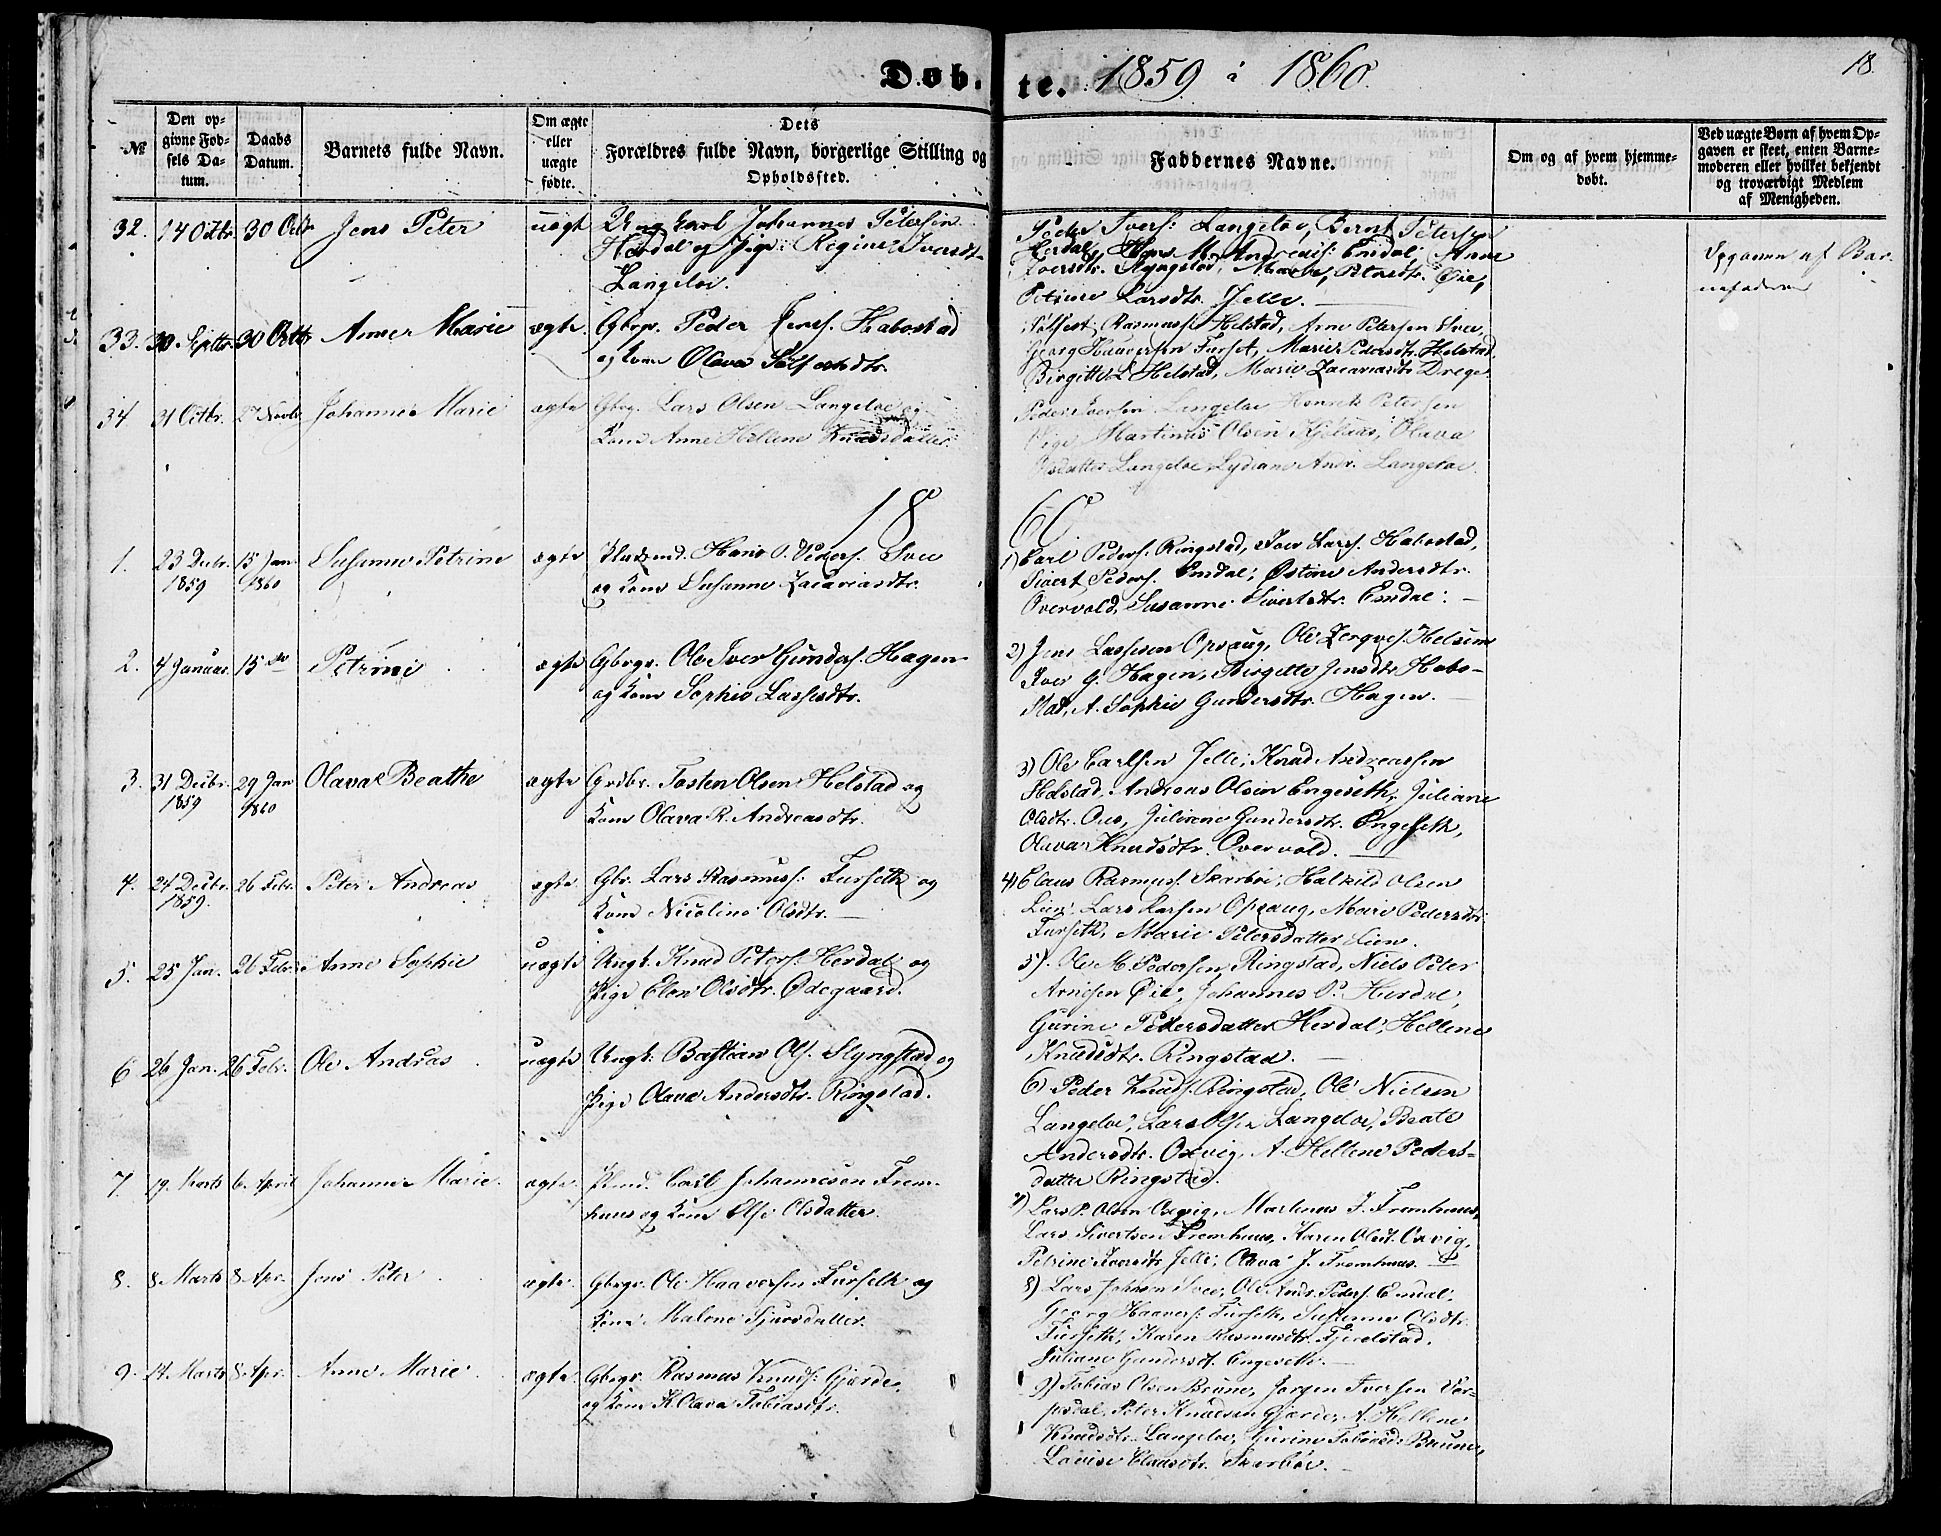 Døbte. 1859 à 1860.
18.
№
Den op-
givne Fød-
sels Da-
tum.
Daabs
Datum.
Barnets fulde Navn.
Om ægte
eller
uægte
fødte.
Dets
Forældres fulde Navn, borgerlige Stilling og
Opholdssted.
Faddernes Navne.
Om og af hvem hjemme-
døbt.
Ved uægte Børn af hvem Op-
gaven er skeet, enten Barne-
moderen eller hvilket bekjendt
og troværdigt Medlem
af Menigheden.
32. 14 Octbr. 30 Octbr. Jens Peter uægte Ungkarl Johannes Petersen
Herdal og Pige Regine Iversdt.
Langeloe.
Peder Ivers. Langeloe, Bernt Petersen
Herdal, Hans M. Andreas. Emdal, Anne
Iversdtr. Slyngstad, Marthe Øie,
Petrine Larsdtr. Jelle.
Opgaven af Bar-
nefaderen
33. 30 Septbr. 30 Octbr. Anne Marie ægte Gbrgr. Peder Jens. Habostad
og Kone Olava Solfestdtr.
Solfest Rasmuss. Helstad, Arne Petersen Svee,
Georg Haaversen Furset, Marie Pedersdtr. Helstad,
Birgitte L. Helstad, Marie Zacariasdtr. Drege.
34. 31 Octbr. 27 Novbr. Johanne Marie ægte Gbrg. Lars Olsen Langeloe og
Kone Anne Hellene Knudsdatter.
Peder Iversen Langeloe Henrik Petersen
Martinus Olsen Kjølaas, Olava
Olsdatter Langeloe, Lydiane Andr. Langeloe.
1860
1. 23 Decbr. 15 Jan. Susanne Petrine ægte Husmd. Hans P. Peders. Svee
1859 1860 og Kone Susanne Zacariasdtr.
1) Carl Peders. Ringstad, Iver Larss. Habostad,
Sivert Peders. Emdal; Østine Andersdtr.
Overvold, Susanne Sivertsdtr. Emdal. —
2. 4 Januar. 15 do Petrine ægte Gbrgr. Ole Iver Gunders. Hagen
og Kone Sophie Lassesdtr.
2) Jens Lassesen Opsaug, Ole Helsem
Iver G. Hagen, Birgitte Jensdtr. Habo-
stad, A. Sophie Gundersdtr. Hagen. —
3. 31 Decbr. 29 Jan Olava Beathe ægte Grdbr. Tosten Olsen Helstad og
1859 1860 Kone Olava R. Andreasdtr.
3) Ole Carlsen Jelle, Knud Andreassen
Helstad, Andreas Olsen Engeseth, Juliane
Olsdtr. Aus, Julirene Gundersdtr. Engeseth,
Olava Knudsdtr. Overvold.
4. 24 Decbr. 26 Febr. Peter Andreas ægte Gbr. Lars Rasmuss. Furseth og
1859. Kone Nicoline Olsdtr. —
4) Claus Rasmus. Skarbøe, Halkild Olsen
Lien, Lars Larsen Opsaug, Marie Pedersdtr.
Furseth, Marie Petersdatter Lien.
5. 25 Jan. 26 Febr. Anne Sophie uægte Ungk. Knud Peters. Herdal og
Pige Elen Olsdtr. Ødegaard.
5) Ole M. Pedersen Ringstad, Niels Peter
Arnesen Øie, Johannes P. Herdal,
Gurine Pedersdatter Herdal, Hellene
Knudsdtr. Ringstad. —
6 26 Jan. 26 Febr. Ole Andreas uægte Ungk. Bastian Ols. Slyngstad og
Pige Olava Andersdtr. Ringstad.
6) Peder Knuds. Ringstad, Ole Nielsen
Langeloe, Lars Olsen Langeloe, Beate
Andersdtr. Oxvig, A. Hellene Peders-
datter Ringstad.
7. 19. Marts 6. April Johanne Marie. ægte Carl Johannesen Frem-
huus og Kone Else Olsdatter.
7) Lars P. Olsen Oxvig, Martinus J. Fremhuus,
Lars Sivertsen Fremhuus, Karen Olsdt. Oxvig,
Petrine Iversdtr. Jelle, Olava J. Fremhuus.
8. 8. Marts 8 Apr. Jens Peter ægte. Gbrgr. Ole Haaversen Furseth og
Kone Malene Sjursdatter.
8) Lars Johnsen Svee, Ole Andr. Peders. Emdal,
Georg Haavers. Furseth, Susanne Olsdtr.
Furseth, Karen Rasmusdtr. Fjordstad,
Juliane Gundersdt. Engeseth.
9. 14. Marts 8. Apr. Anne Marie. ægte. Gbrgr. Rasmus Knuds. Gjærde,
og Kone K. Olava Tobiasdtr.
9) Tobias Olsen Brune, Jørgen Iversen Vor-
pedal, Peter Knudsen Gjærde, A. Hellene
Knudsdtr. Langeloe, Gurine Tobiasd. Brune,
Lovise Clausdtr. Skarbøe. —